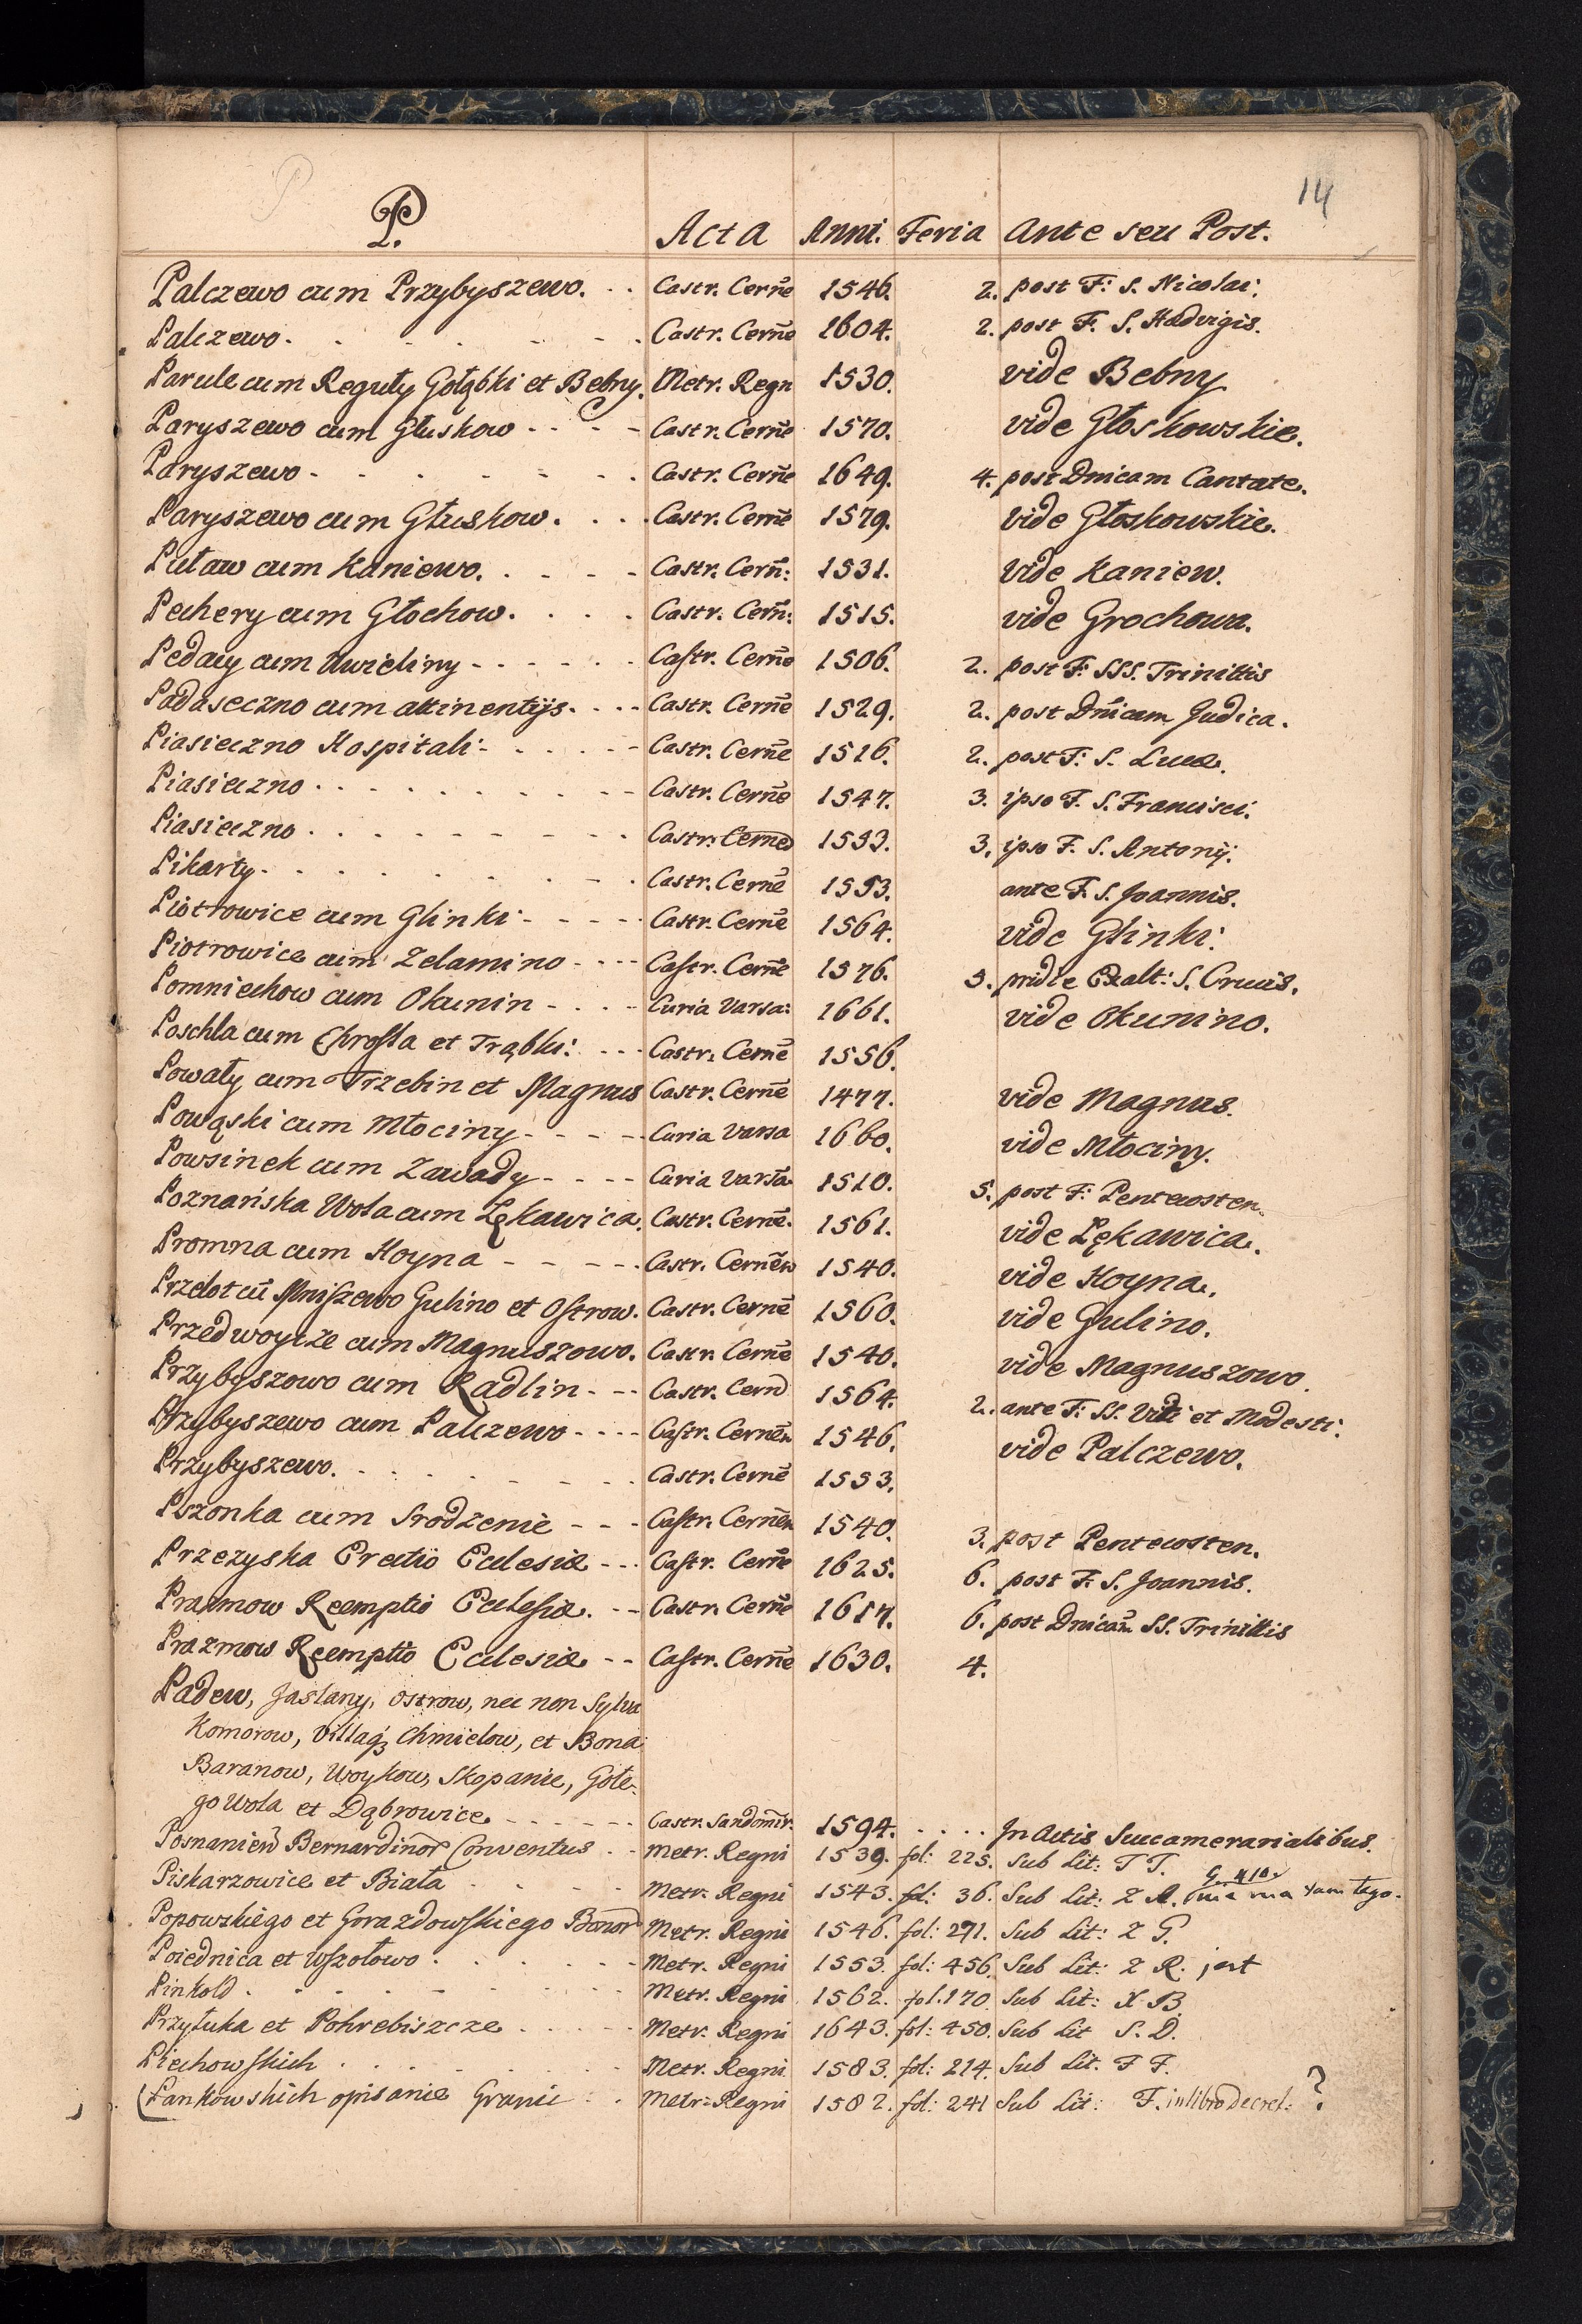 14
P.
Acta Anni. Feria Ante seu Post.
Palczewo cum Przybyszewo. Castr. Cerne 1546. 2. post F: S. Nicolai.
Palczewo. Castr. Cerne 1604. 2. post F. S. Hedvigis.
Parule cum Reguły Gołąbki et Bebny. Metr. Regn 1530. vide Bebny
Paryszewo cum Głuskow Castr. Cerne 1570. vide Głoskowskie.
Paryszewo Castr. Cerne 1649. 4. post Dnicam Cantate.
Paryszewo cum Głuskow. Castr. Cerne 1579. vide Głoskowskie.
Puław cum Kaniewo. Castr. Cern: 1531. vide Kaniew.
Pechery cum Głochow. Castr. Cern: 1515. vide Grochowa.
Pedacy cum Uwieliny Castr. Cerne 1506. 2. post F: SSS. Trinittis
Padaseczno cum attinentijs. Castr. Cerne 1529. 2. post Dnicam Judica.
Piasieczno Hospitali Castr. Cerne 1516. 2. post F: S. Lucæ.
Piasieczno Castr. Cerne 1547. 3. ipso F. S. Francisci.
Piasieczno Castr. Cerne 1593. 3. ipso F. S. Antonij.
Pikarty. Castr. Cerne 1553. ante F. S. Joannis.
Piotrowice cum Glinki Castr. Cerne 1564. vide Glinki.
Piotrowice cum Zelamino Castr. Cerne 1576. 3. pridie Exalt: S. Crucis.
Pomniechow cum Okunin Curia Varsa: 1661. vide Okunino.
Poschla cum Chrosta et Trąbki. Castr. Cerne 1556.
Powały cum Trzebin et Magnus Castr. Cerne 1477. vide Magnus.
Powąski cum Młociny Curia Varsa 1660. vide Młociny.
Powsinek cum Zawady Curia Varsa 1510. 5. post F: Pentecosten.
Poznańska Wola cum Lękawica. Castr. Cerne. 1561. vide Lękawica.
Promna cum Hoyna Castr. Cernen 1540. vide Hoyna.
Przelot cū Mniszewo Gulino et Ostrow. Castr. Cerne 1560. vide Gulino.
Przedwoycze cum Magnuszowo. Castr. Cerne 1540. vide Magnuszowo.
Przybyszowo cum Radlin Castr. Cern 1564. 2. ante F: SS. Viti et Modesti.
Przybyszewo cum Palczewo Castr. Cernen 1546. vide Palczewo.
Przybyszewo. Castr. Cerne 1553.
Pszonka cum Srodzenie Castr. Cernen 1540. 3. post Pentecosten.
Przezyska Erectio Eclesiæ Castr. Cerne 1625. 6. post F. S. Joannis.
Prazmow Reemptio Eclesiæ. Castr. Cerne 1617. 6. post Dnicam SS. Trinittis
Prazmow Reemptio Eclesiæ Castr. Cerne 1630. 4.
Padew, Jaslany, Ostrow, nec non Sylva
Komorow, Villaq3 Chmielow, et Bona
Baranow, Woykow, Skopanie, Gole-
go Wola et Dąbrowice Castr. Sandomir. 1594. In Actis Succamerarialibus.
Posnanien Bernardinor Conventus Metr. Regni 1539. fol: 225. Sub Lit: T T.
Piskarzowice et Biała Metr. Regni 1543. fol: 36. Sub Lit: Z A. nie ma tam tego.
Popowskiego et Gorazdowskiego Bonor Metr. Regni 1546. fol: 271. Sub Lit: Z G.
Poiednica et Wszołowo Metr. Regni 1553. fol: 456. Sub Lit: Z R. jest
Pinkold Metr. Regni 1562. fol. 170. Sub Lit: X B.
Przyłuka et Pohrebiszcze Metr. Regni 1643. fol: 450. Sub Lit S. D.
Piechowskich Metr. Regni 1583. fol: 214. Sub Lit. F F.
(Pankowskich opisanie Granic Metr: Regni 1582. fol: 241 Sub Lit: F. in libro Decret: ?